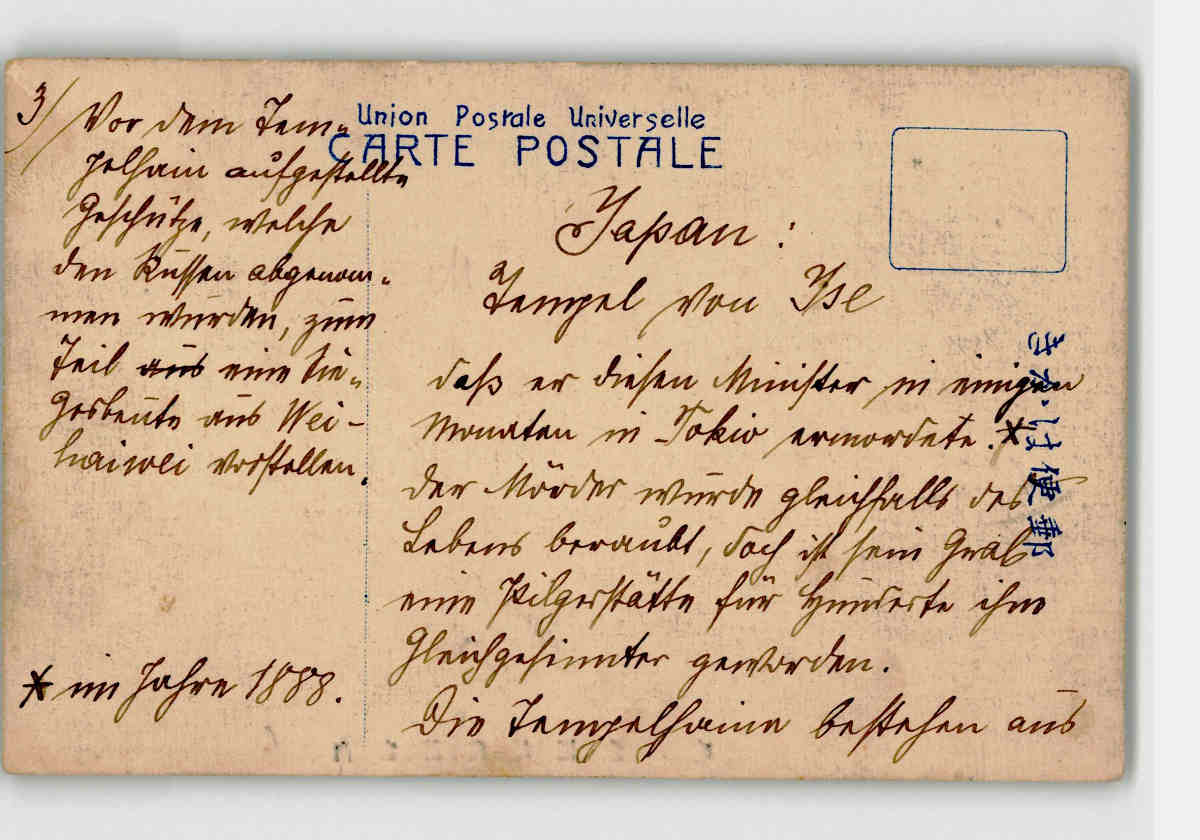 Union Postale Universelle
CARTE POSTALE
3/ Vor dem Tem-
pelhain aufgestellte
Geschütze, welche
den Russen abgenom-
men wurden, zum
Teil aus eine Sie-
gesbeute aus Wei-
haiwei vorstellen.
* im Jahre 1888.
Japan:
Tempel von Ise
daß er diesen Minister in einigen
Monaten in Tokio ermordete.*
der Mörder wurde gleichfalls des
Lebens beraubt, doch ist sein Grab
eine Pilgerstätte für Hunderte ihm
Gleichgesinnter geworden.
Die Tempelhaine bestehen aus
郵便はがき